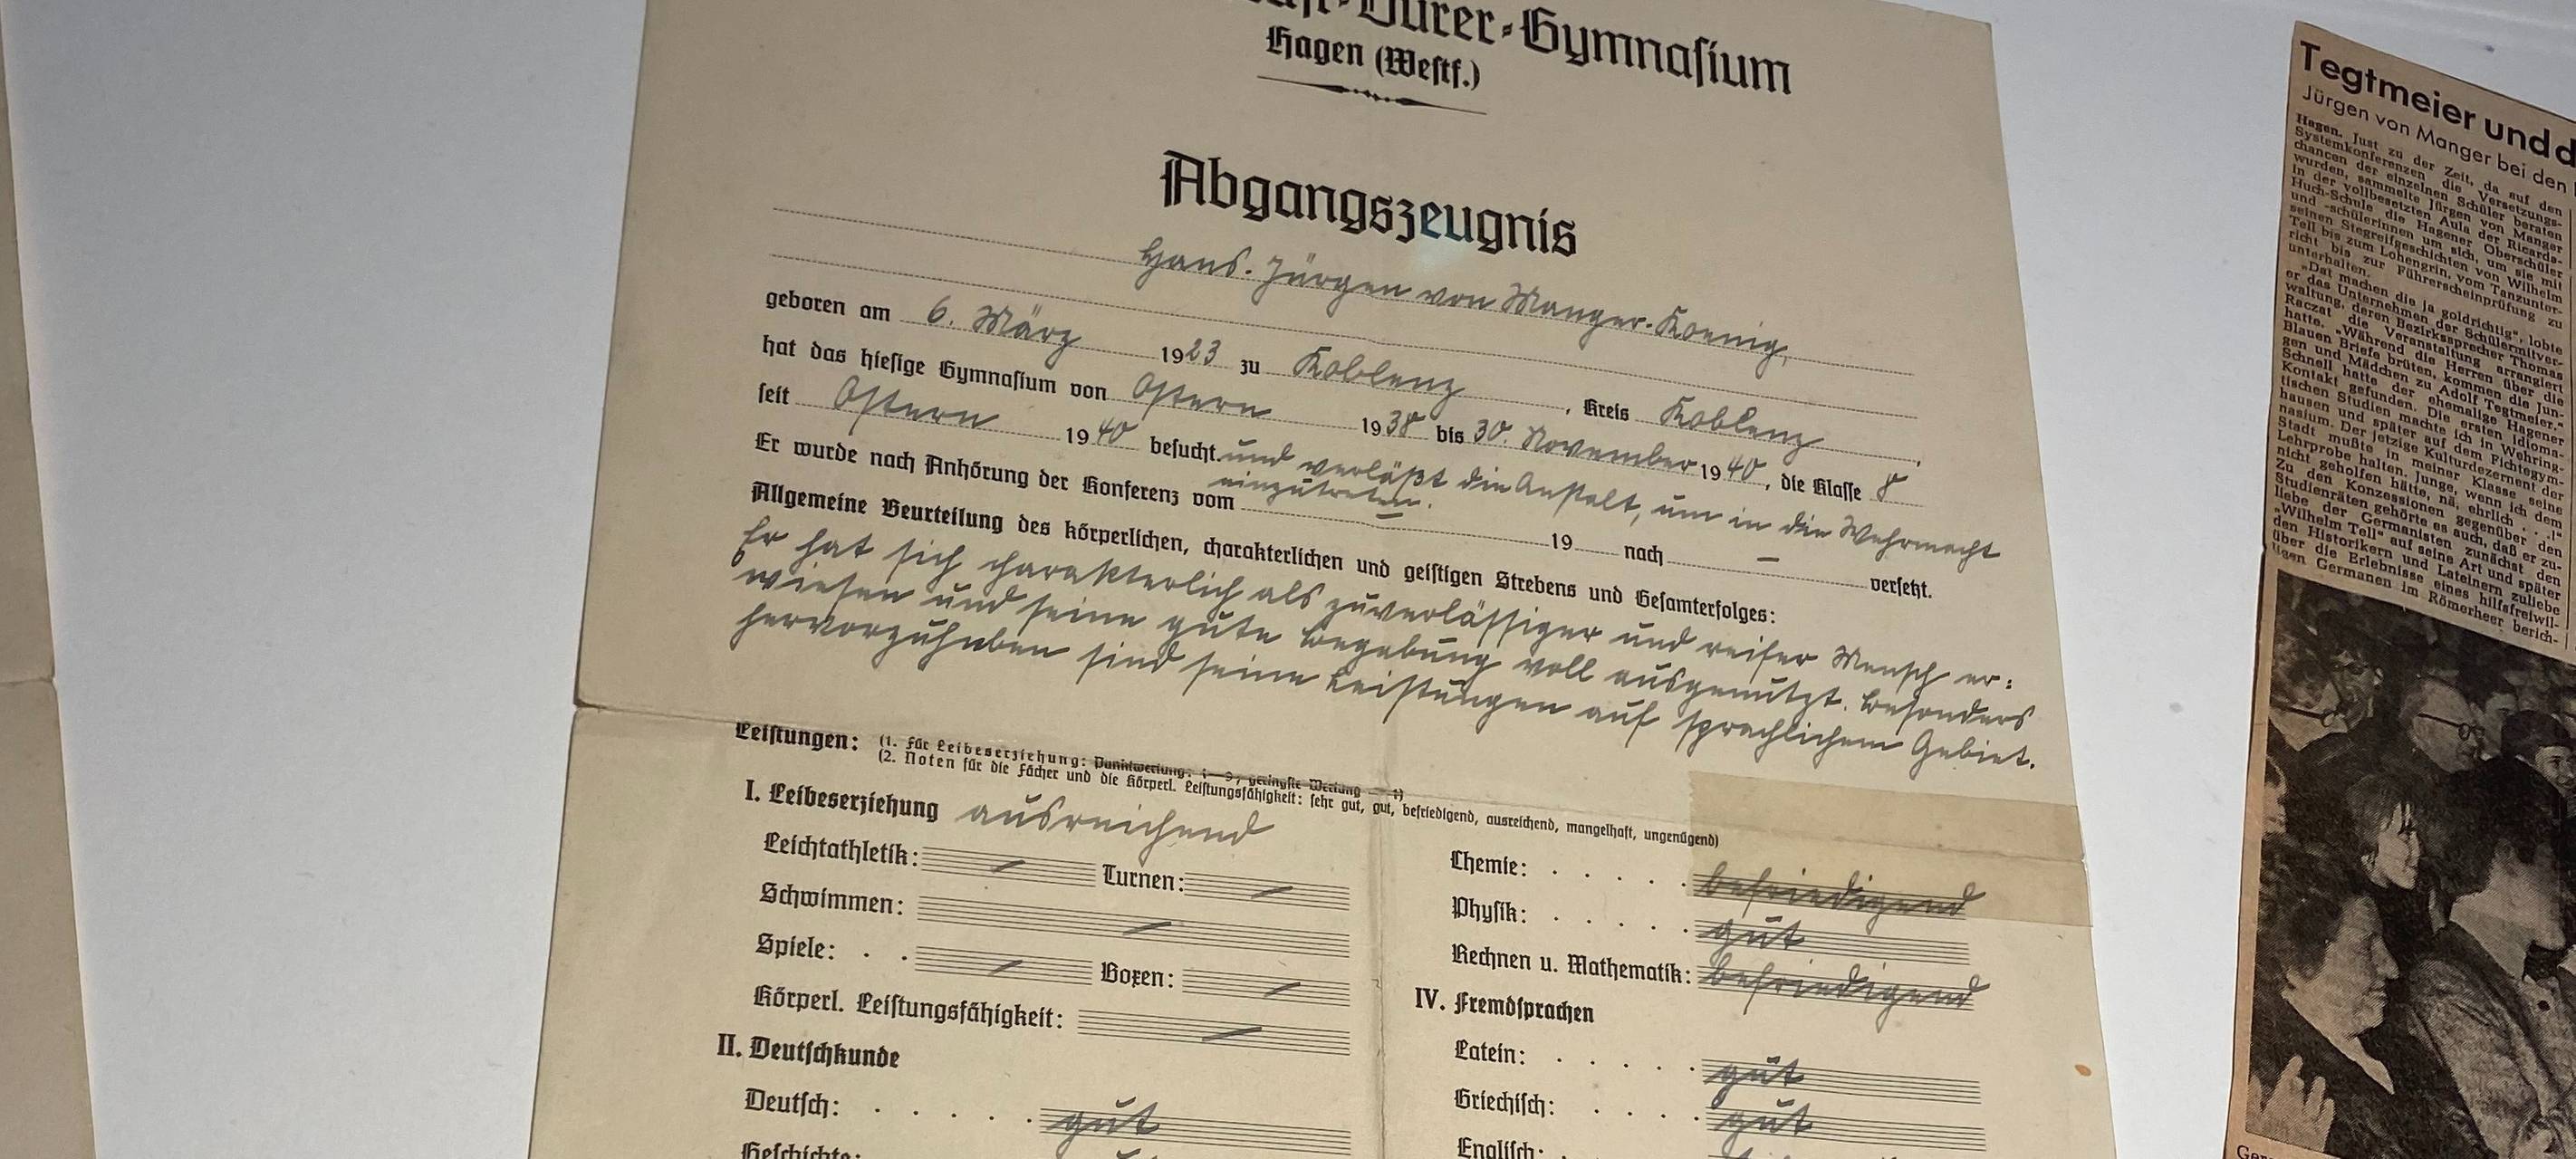 Dürer-Gymnasium
Hagen (Westf.)
Abgangszeugnis
Hans-Jürgen von Manger-Koenig,
geboren am 6. März 1923 zu Koblenz, Kreis Koblenz,
hat das hiesige Gymnasium von Ostern 1938 bis 30. November 1940, die Klasse 8
seit Ostern 1940 besucht. und verläßt die Anstalt, um in die Wehrmacht
einzutreten.
Er wurde nach Anhörung der Konferenz vom 19 nach – versetzt.
Allgemeine Beurteilung des körperlichen, charakterlichen und geistigen Strebens und Gesamterfolges:
Er hat sich charakterlich als zuverlässiger und reifer Mensch er=
wiesen und seine gute Begabung voll ausgenützt. Besonders
hervorzuheben sind seine Leistungen auf sprachlichem Gebiet.
Leistungen: (1. Für Leibeserziehung: Punktwertung: 1–9, geringste Wertung = 1)
(2. Noten für die Fächer und die körperl. Leistungsfähigkeit: sehr gut, gut, befriedigend, ausreichend, mangelhaft, ungenügend)
I. Leibeserziehung ausreichend
Leichtathletik: – Turnen: –
Schwimmen: –
Spiele: . . – Boxen: –
Körperl. Leistungsfähigkeit: –
II. Deutschkunde
Deutsch: . . . . . gut
Geschichte:
Chemie: . . . . . befriedigend
Physik: . . . . . gut
Rechnen u. Mathematik: befriedigend
IV. Fremdsprachen
Latein: . . . . . gut
Griechisch: . . . . gut
Englisch: .
Tegtmeier und d
Jürgen von Manger bei den
Hagen. Just zu der Zeit, da auf den
Systemkonferenzen die Versetzungs-
chancen der einzelnen Schüler beraten
wurden, sammelte Jürgen von Manger
in der vollbesetzten Aula der Ricarda-
Huch-Schule die Hagener Oberschüler
und -schülerinnen um sich, um sie mit
seinen Stegreifgeschichten von Wilhelm
Tell bis zum Lohengrin, vom Tanzunter-
richt bis zur Führerscheinprüfung zu
unterhalten.
„Dat machen die ja goldrichtig“, lobte
er das Unternehmen der Schülermitver-
waltung, deren Bezirkssprecher Thomas
Raczat die Veranstaltung arrangiert
hatte. „Während die Herren über die
Blauen Briefe brüten, kommen die Jun-
gen und Mädchen zu Adolf Tegtmeier.“
Schnell hatte der ehemalige Hagener
Kontakt gefunden. Die ersten idioma-
tischen Studien machte ich in Wehring-
hausen und später auf dem Fichtegym-
nasium. Der jetzige Kulturdezernent der
Stadt mußte in meiner Klasse seine
Lehrprobe halten. Junge, wenn ich dem
nicht geholfen hätte, nä, ehrlich . . .!“
Zu den Konzessionen gegenüber den
Studienräten gehörte es auch, daß er zu-
liebe der Germanisten zunächst den
„Wilhelm Tell“ auf seine Art und später
den Historikern und Lateinern zuliebe
über die Erlebnisse eines hilfsfreiwil-
ligen Germanen im Römerheer berich-